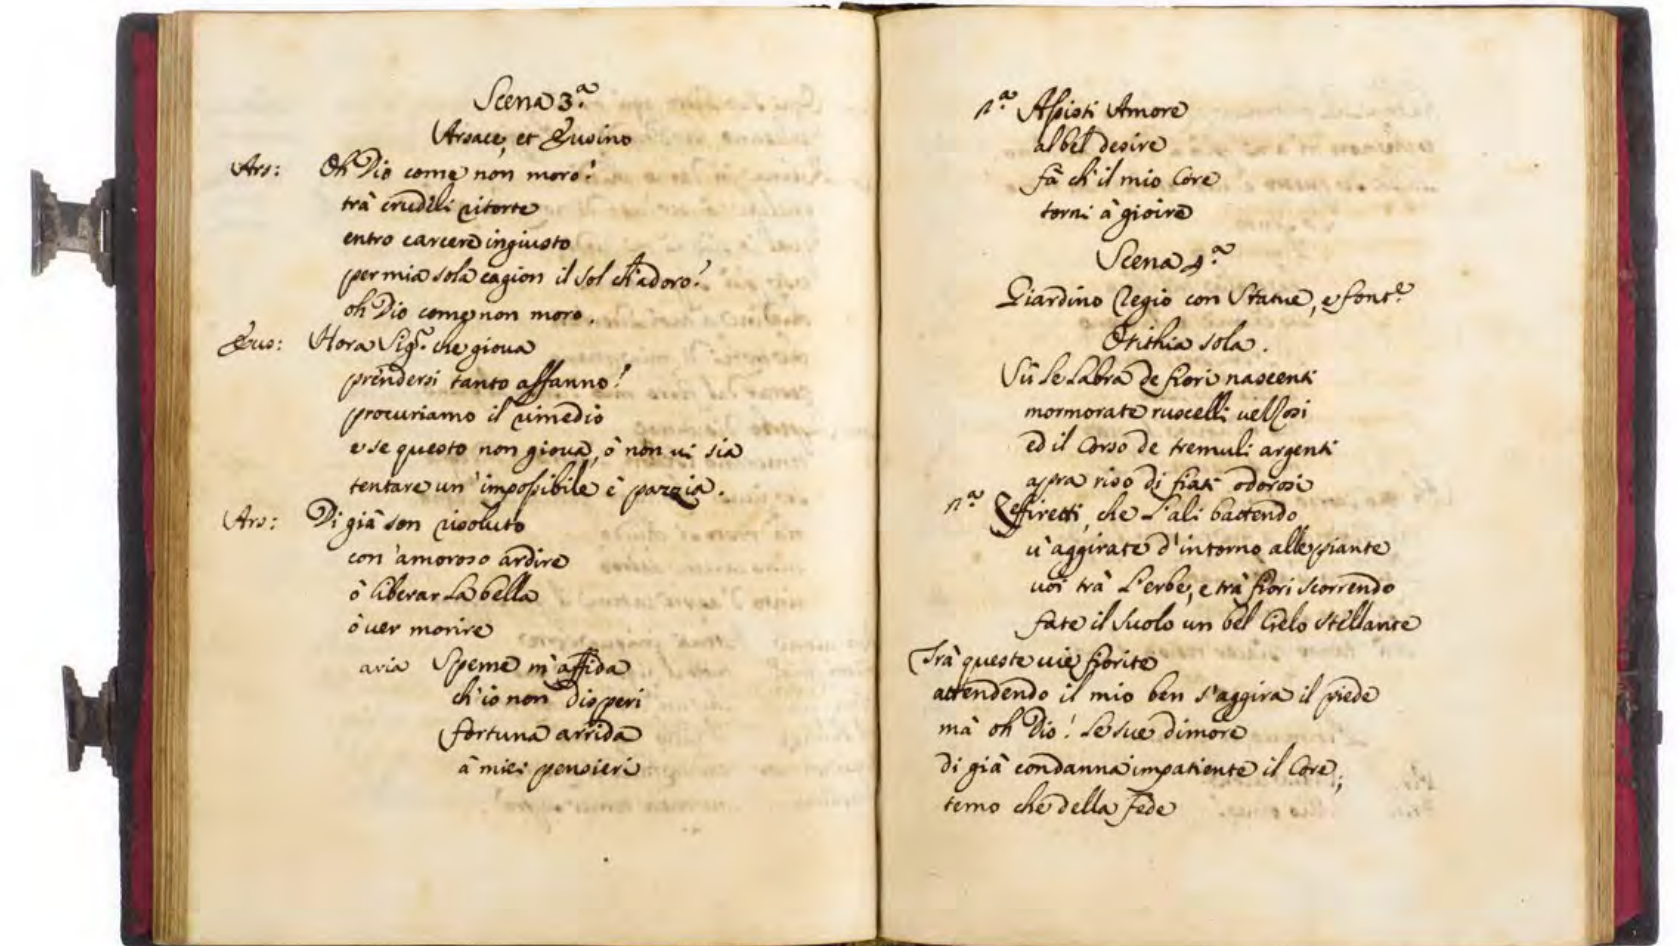 Scena 3.ª
Arsace, et Eusino
Ars: Oh Dio come non moro?
trà crudeli ritorte
entro carcere ingiusto
per mia sola cagion il sol ch'adoro?
oh Dio come non moro.
Eus: Hora Sig.ʳ che giova
prendersi tanto affanno?
procuriamo il rimedio
e se questo non giova, ò non vi sia
tentare un'impossibile è pazzia.
Ars: Di già son risoluto
con'amoroso ardire
ò liberar la bella
ò ver morire
aria Speme m'affida
ch'io non disperi
fortuna arrida
à miei pensieri
2.ª Assisti Amore
al bel desire
fà ch'il mio Core
torni à gioire
Scena 4.ª
Giardino Regio con Statue, e font.ᵉ
Orithia sola.
Sù le labra de fiori nascenti
mormorate ruscelli vezzosi
ed il Corso de tremuli argenti
apra riso di fiati odorosi
2.ª Zeffiretti, che l'ali battendo
v'aggirate d'intorno alle piante
voi trà l'erbe, e trà fiori scorrendo
fate il suolo un bel Cielo stellante
Trà queste vie fiorite
attendendo il mio ben s'aggira il piede
mà oh Dio! le sue dimore
di già condanna impatiente il Core;
temo che della fede